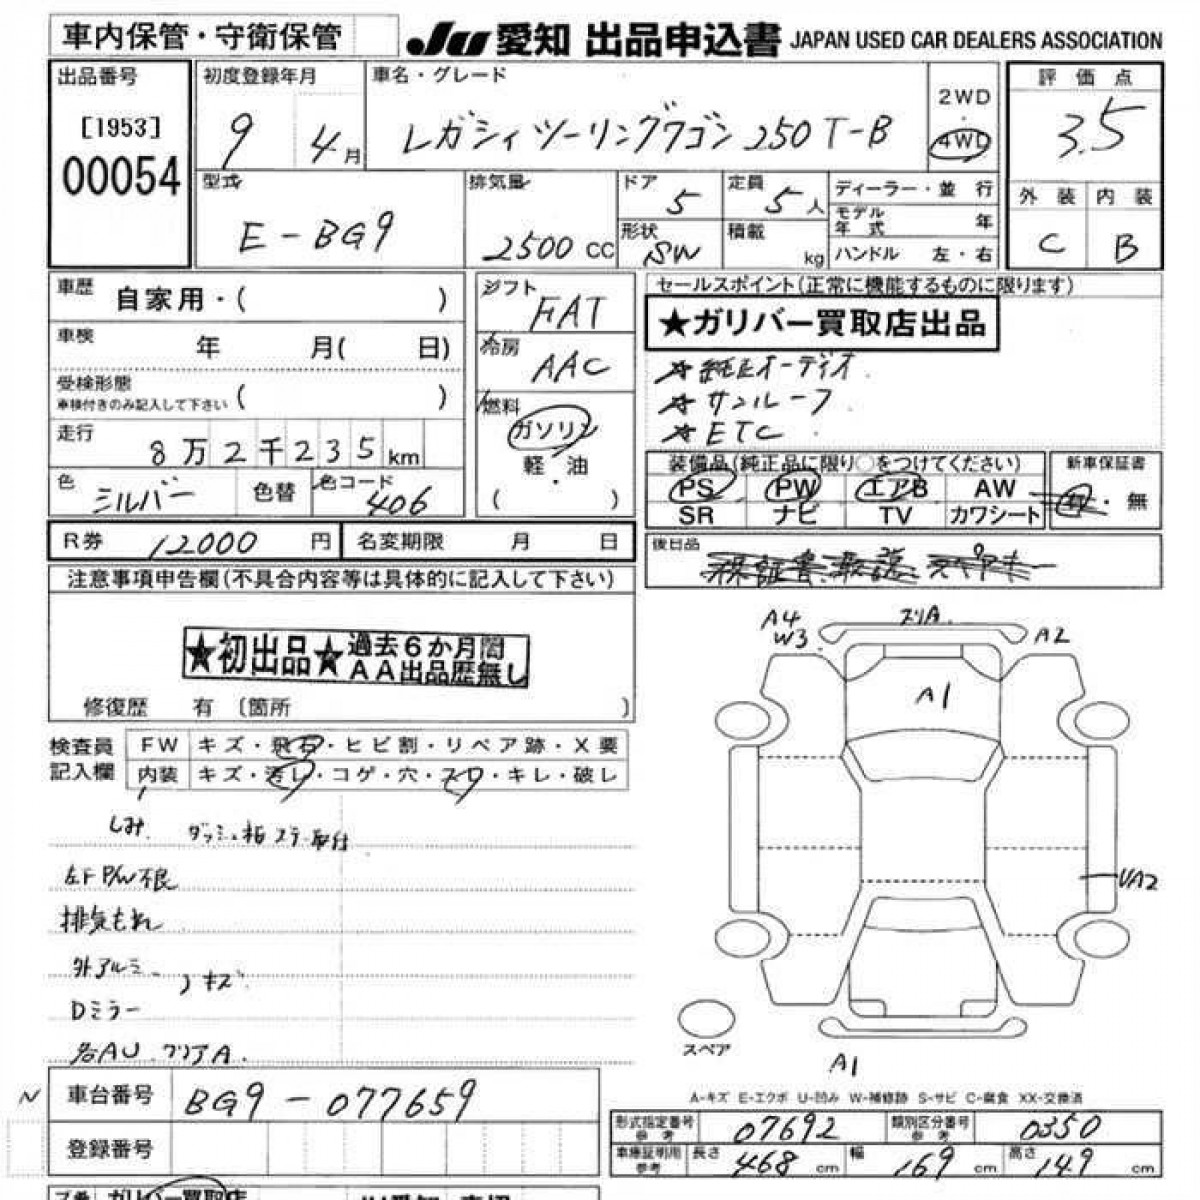 車内保管・守衛保管 JU愛知 出品申込書 JAPAN USED CAR DEALERS ASSOCIATION
出品番号 初度登録年月 車名・グレード 2WD・4WD 評価点
[1953] 00054 9 4月 レガシィツーリングワゴン250T-B 3.5
型式 E-BG9 排気量 2500cc ドア 5 定員 5人 ディーラー・並行 外装 内装
形状 SW 積載 kg モデル年式 年 C B
ハンドル 左・右
車歴 自家用・( ) シフト FAT セールスポイント(正常に機能するものに限ります)
車検 年 月( 日) 冷房 AAC ★ガリバー買取店出品
受検形態 車検付きのみ記入して下さい ( ) ★純正オーディオ
燃料 ガソリン ★サンルーフ
軽・油 ★ETC
( ・ )
走行 8万2千235km 装備品(純正品に限り○をつけてください) 新車保証書
色 シルバー 色替 色コード 406 PS PW エアB AW 有・無
SR ナビ TV カワシート
R券 12000円 名変期限 月 日 後日品 保証書、取説、スペアキー
注意事項申告欄(不具合内容等は具体的に記入して下さい)
★初出品★過去6か月間
AA出品歴無し
修復歴 有 〔箇所 〕
検査員記入欄 FW キズ・飛石・ヒビ割・リペア跡・X要
内装 キズ・汚レ・コゲ・穴・スレ・キレ・破レ
しみ ダッシュ板 ステー取付
左F P/W不良
排気もれ
外アルミ、
キズ
Dミラー
各AU クリアA.
A4
W3
スリA.
A2
A1
UA2
A1
スペア
A-キズ E-エクボ U-凹み W-補修跡 S-サビ C-腐食 XX-交換済
N 車台番号 BG9-077659
登録番号
形式指定番号 参考 07692 類別区分番号 参考 0350
車庫証明用 参考 長さ 468cm 幅 169cm 高さ 149cm
ガリバー買取店